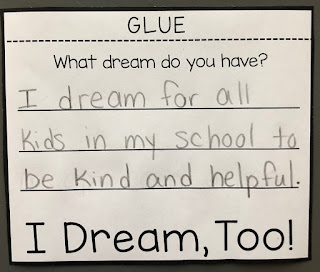 GLUE
What dream do you have?
I dream for all
kids in my school to
be kind and helpful.
I Dream, Too!